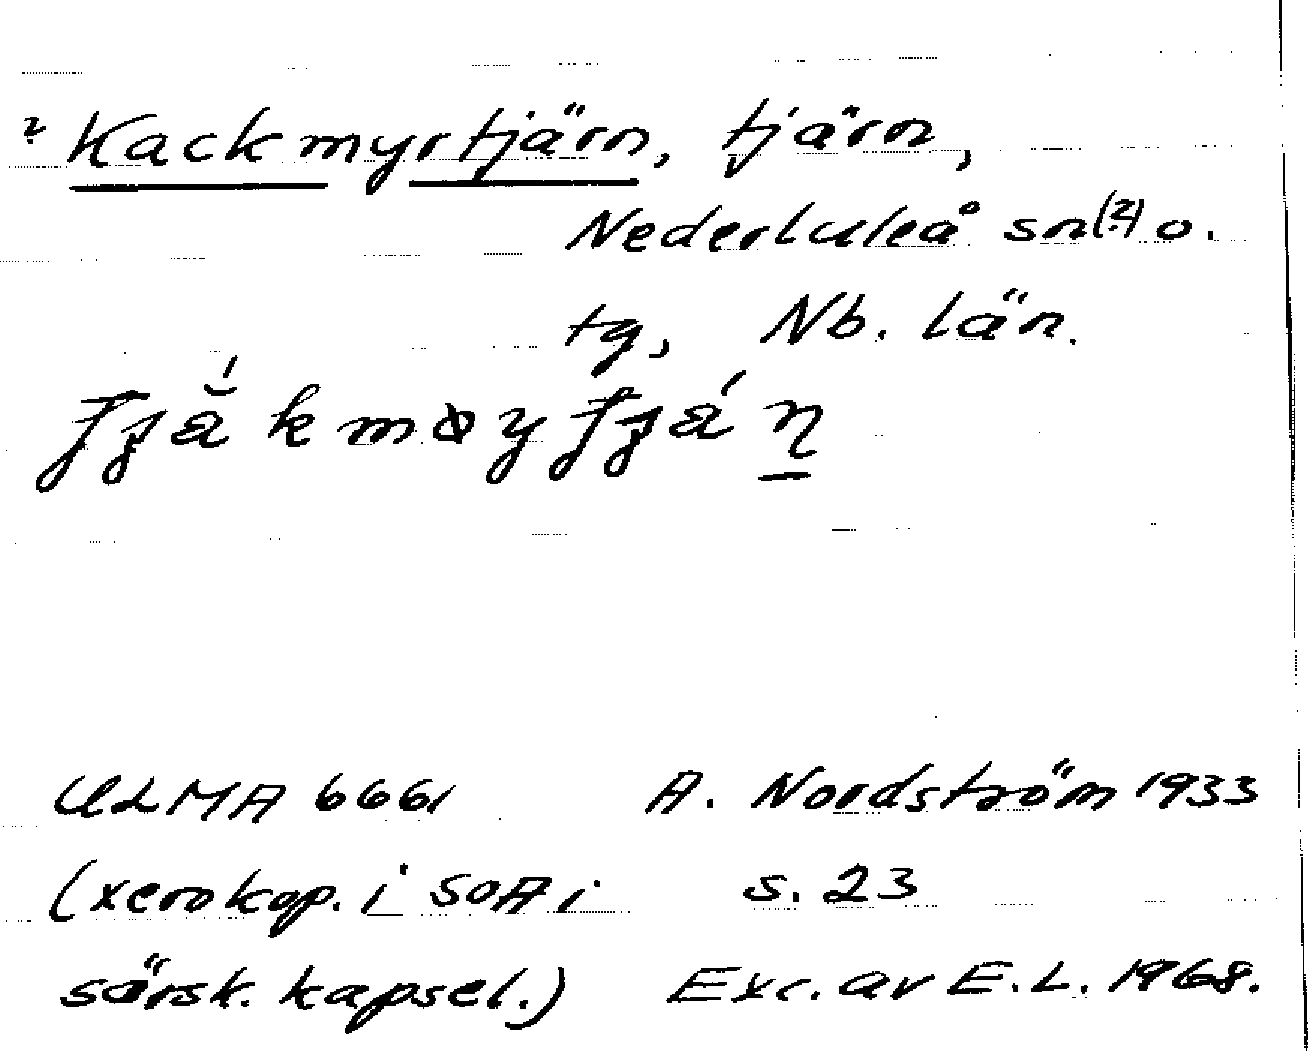 ? Kackmyrtjärn, tjärn,
Nederluleå sn(?) o.
tg, Nb. län.
ULMA 6661 A. Nordström 1933
(xerokop. i SOA i s. 23
särsk. kapsel.) Exc. av E.L. 1968.